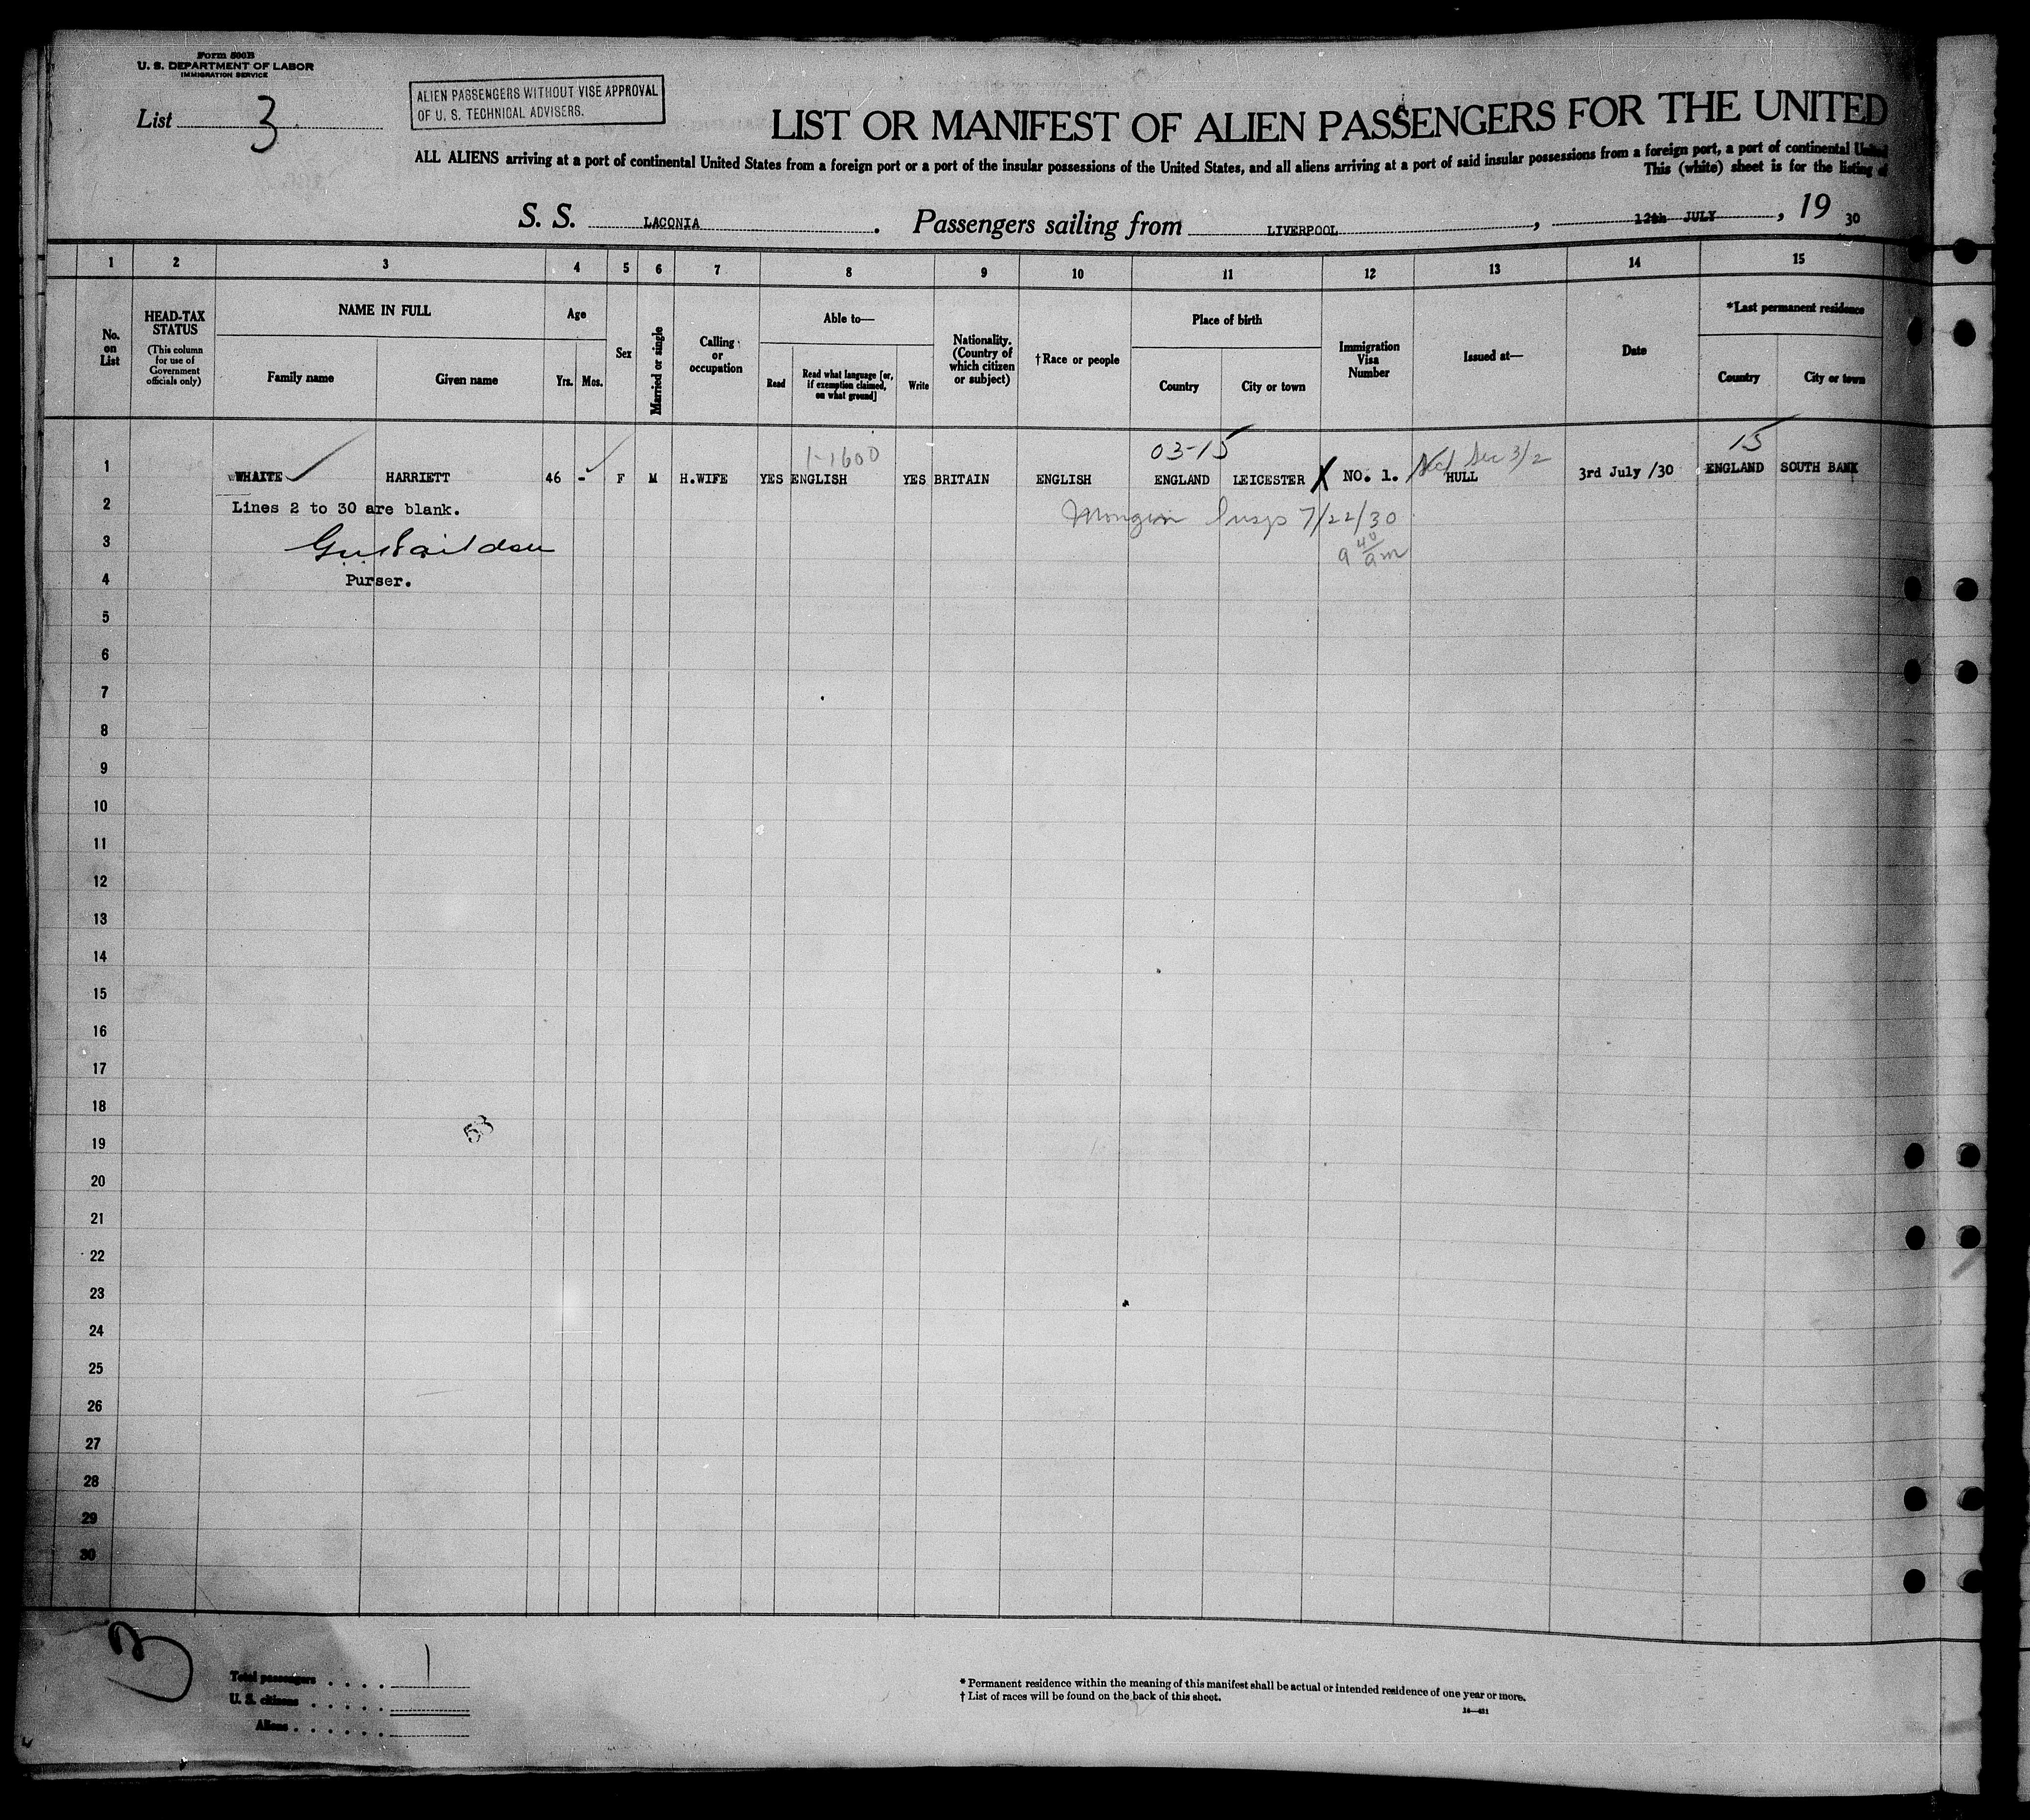 Form 500B
U. S. DEPARTMENT OF LABOR
IMMIGRATION SERVICE
List 3
ALIEN PASSENGERS WITHOUT VISE APPROVAL
OF U. S. TECHNICAL ADVISERS.
LIST OR MANIFEST OF ALIEN PASSENGERS FOR THE UNITED
ALL ALIENS arriving at a port of continental United States from a foreign port or a port of the insular possessions of the United States, and all aliens arriving at a port of said insular possessions from a foreign port, a port of continental United
This (white) sheet is for the listing of
S. S. LACONIA . Passengers sailing from LIVERPOOL , 12th JULY , 19 30
1 2 3 4 5 6 7 8 9 10 11 12 13 14 15
No. on List
HEAD-TAX STATUS (This column for use of Government officials only)
NAME IN FULL
Family name
Given name
Age
Yrs. Mos.
Sex
Married or single
Calling or occupation
Able to—
Read
Read what language [or, if exemption claimed, on what ground]
Write
Nationality. (Country of which citizen or subject)
†Race or people
Place of birth
Country
City or town
Immigration Visa Number
Issued at—
Date
*Last permanent residence
Country
City or town
1-1600 03-15 Sec 3/2 15
1 WHAITE HARRIETT 46 - F M H.WIFE YES ENGLISH YES BRITAIN ENGLISH ENGLAND LEICESTER X NO. 1. HULL 3rd July /30 ENGLAND SOUTH BANK
2 Lines 2 to 30 are blank.
7/22/30
3
9 40 am
4 Purser.
5
6
7
8
9
10
11
12
13
14
15
16
17
18
53
19
20
21
22
23
24
25
26
27
28
29
30
3
Total passengers . . . . 1
U. S. citizens . . . . .
Aliens . . . . . .
* Permanent residence within the meaning of this manifest shall be actual or intended residence of one year or more.
† List of races will be found on the back of this sheet.